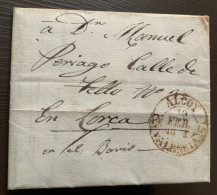 á Dn. Manuel
Periago Calle de
Tello No.
En Lorca
en sal Barrio
ALCOY
FEB
VALENCIA